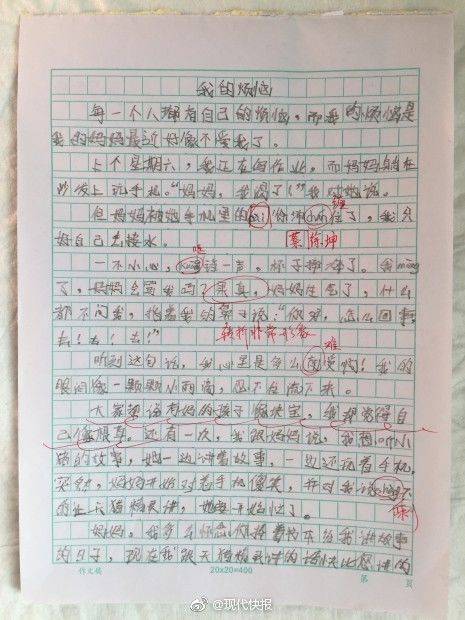 我的烦恼
每一个人都有自己的烦恼，而我的烦恼是
我的妈妈最近好像不爱我了。
上个星期六，我正在写作业，而妈妈躺在
沙发上玩手机。“妈妈，我渴了！”我对她说。
但妈妈被她手机里的
住了，我只
缠
好自己去接水。
蔡徐坤
一不小心，
一声，杯子摔碎了。我
了，妈妈会骂我吗？果真，妈妈生气了，什么
都不问我，指着我的鼻子说：“你呀，怎么回事，
去！去！去！”
转折非常形象
难
听到这句话，我心里是多么
受啊！我的
眼泪像一颗颗小雨滴，忍不住流下来。
大家都说有妈的孩子像块宝，我却觉得自
己像根草。还有一次，我跟妈妈说，我想听小
猪的故事，她一边讲着故事，一边还玩着手机，
突然，妈妈开始对着手机傻笑，并对我说
不
如让天猫精灵讲，她
开始忙了。
妈妈，我多么怀念你捧着书本给我讲故事
的日子，现在我跟天猫精灵讲的话快比您讲的
作文稿
20×20=400
第
页
@现代快报